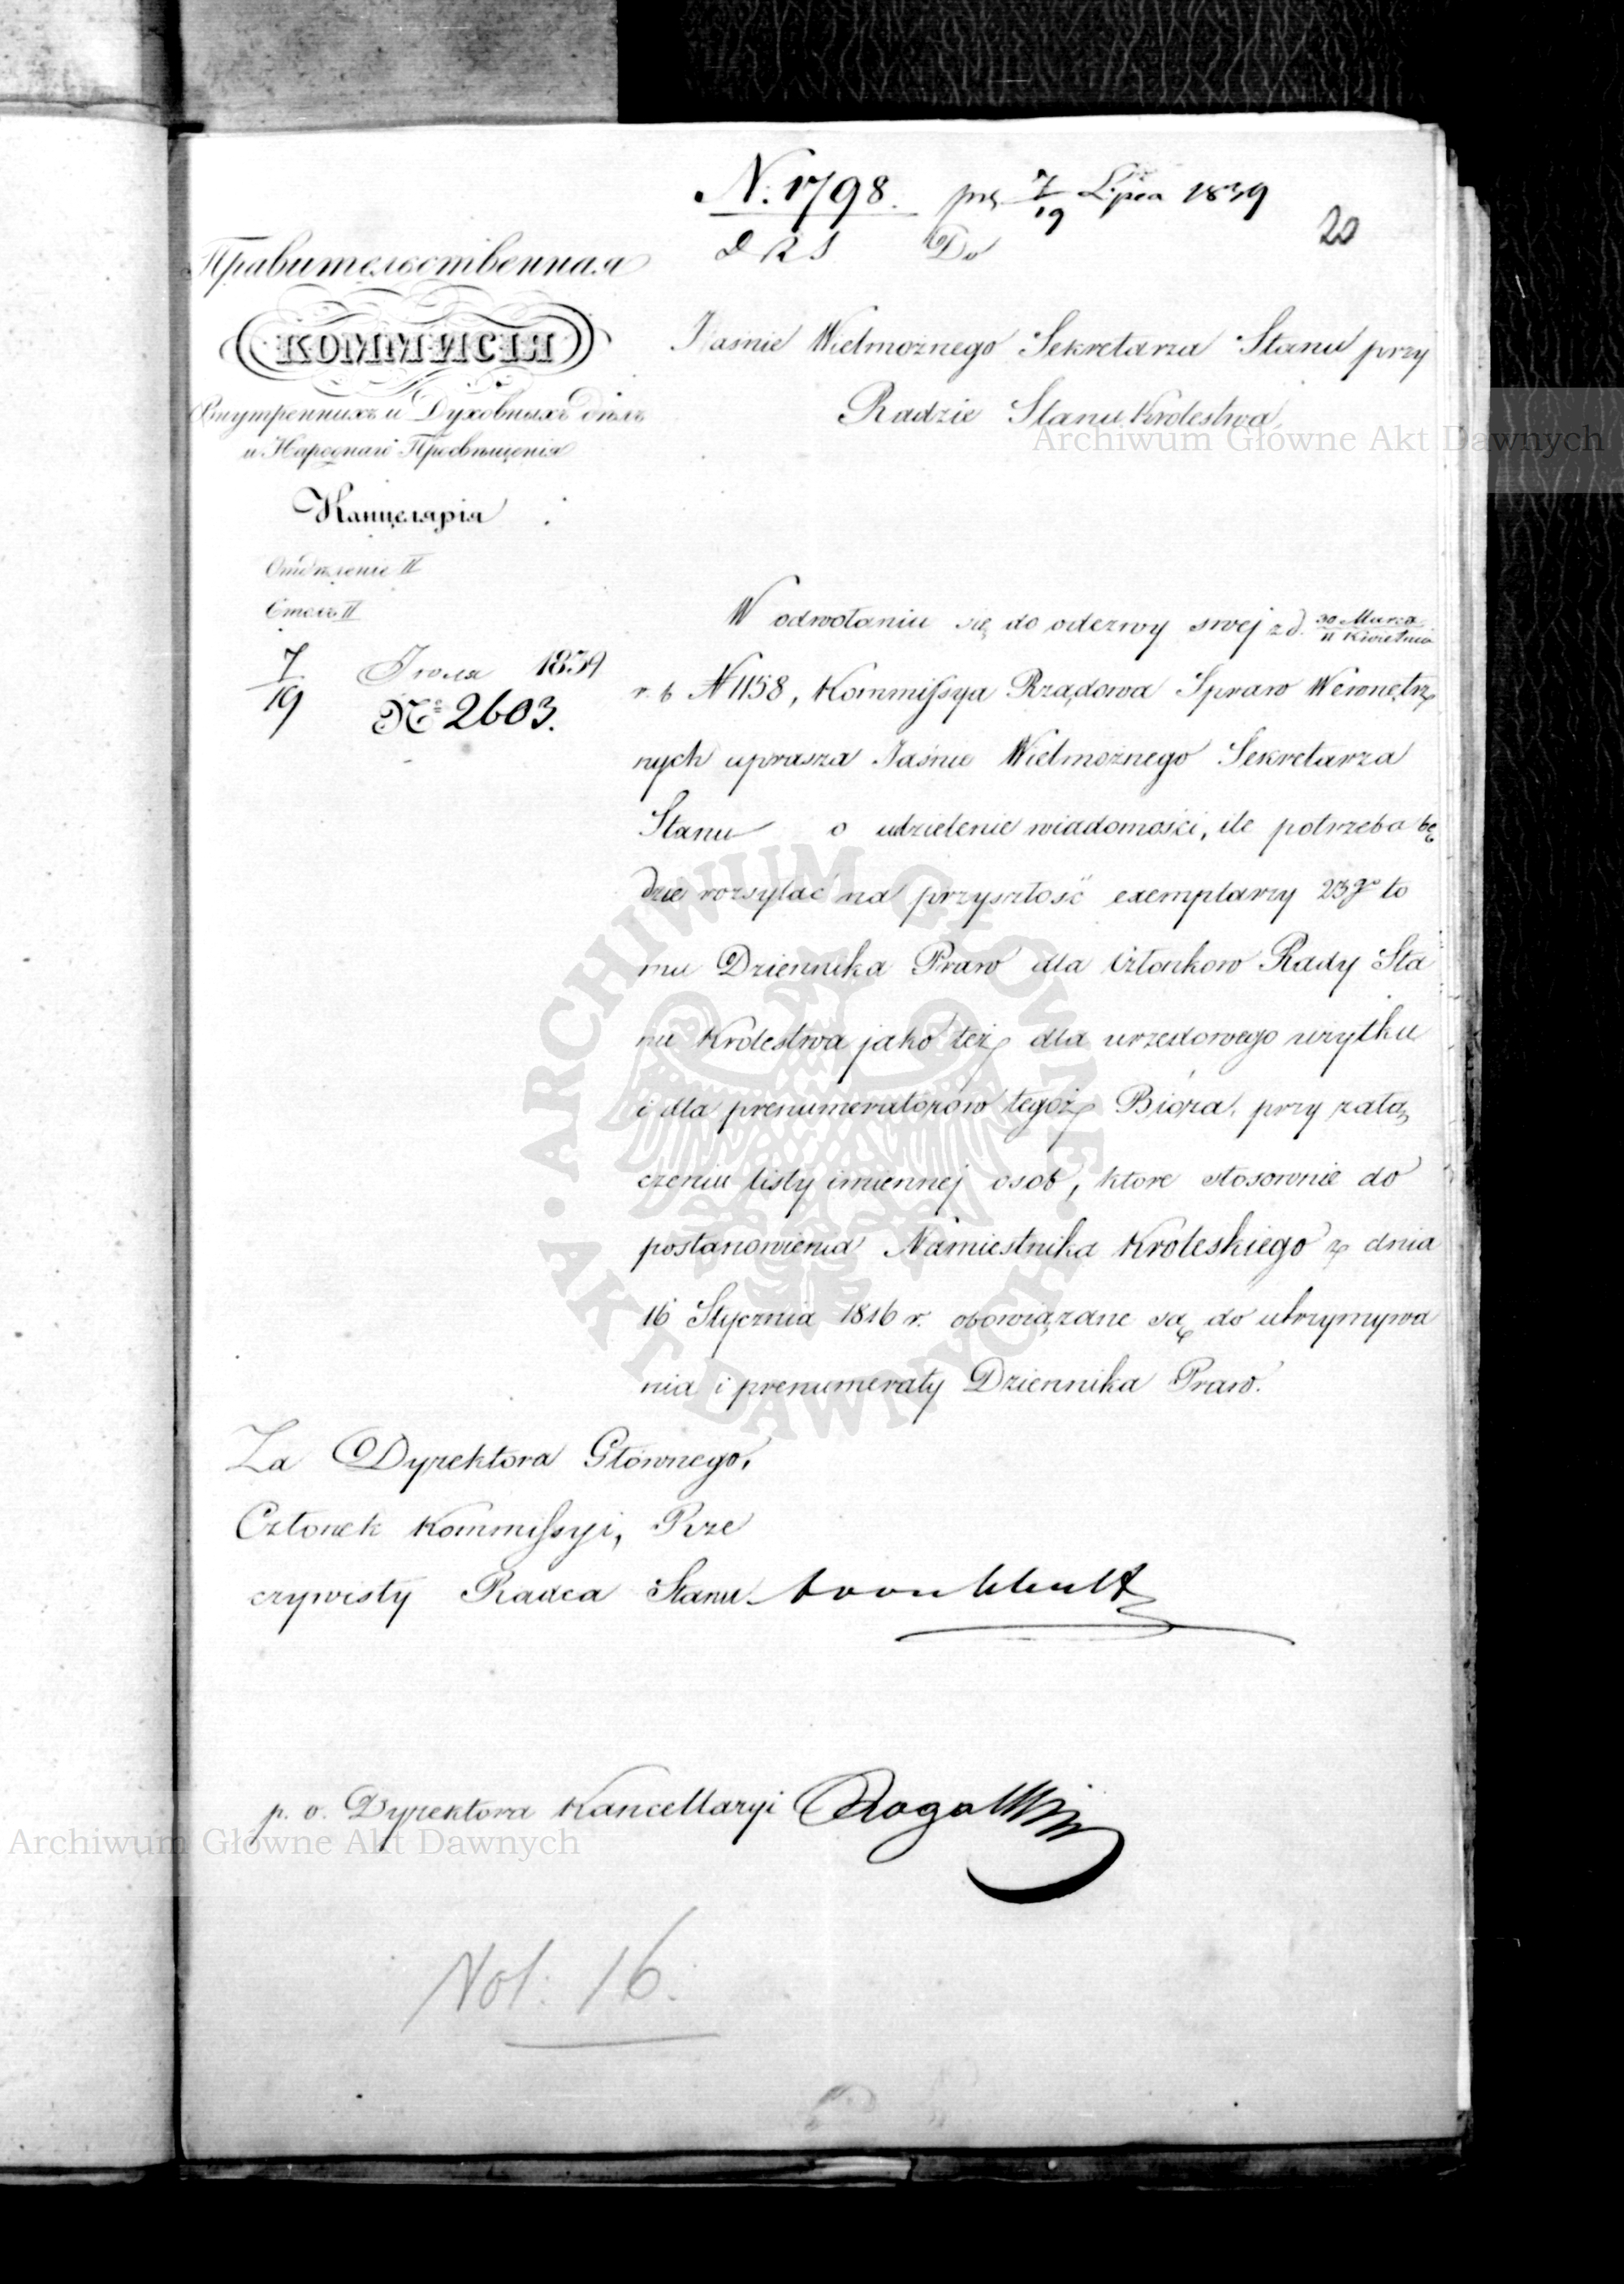 N. 1798. prz. 7/19 Lipca 1839
20
D R S Do
Правительственная
КОММИСІЯ
Внутреннихъ и Духовныхъ дѣлъ
и Народнаго Просвѣщенія
Канцелярія
Отдѣленіе II
Столъ II
7/19 Іюля 1839
№ 2603.
Jaśnie Wielmożnego Sekretarza Stanu przy
Radzie Stanu Krolestwa
W odwołaniu się do odezwy swej z d. 30 Marca / 11 Kwietnia
r. b N 1158, Kommissya Rządowa Spraw Wewnętrz
nych uprasza Jaśnie Wielmożnego Sekretarza
Stanu o udzielenie wiadomości, ile potrzeba bę
dzie rozsyłać na przyszłość exemplarzy 23go to
mu Dziennika Praw dla Członkow Rady Sta
nu Krolestwa jako też dla urzedowego użytku
i dla prenumeratorow tegoż Bióra, przy załą
czeniu listy imiennej osob, ktore stosownie do
postanowienia Namiestnika Kroleskiego z dnia
16 Stycznia 1816 r. obowiązane są do utrzymywa
nia i prenumeraty Dziennika Praw.
Za Dyrektora Głównego,
Członek Kommissyi, Rze
czywisty Radca Stanu
p. o. Dyrektora Kancellaryi
Vol: 16.
Archiwum Główne Akt Dawnych
Archiwum Główne Akt Dawnych
ARCHIWUM GŁÓWNE AKT DAWNYCH